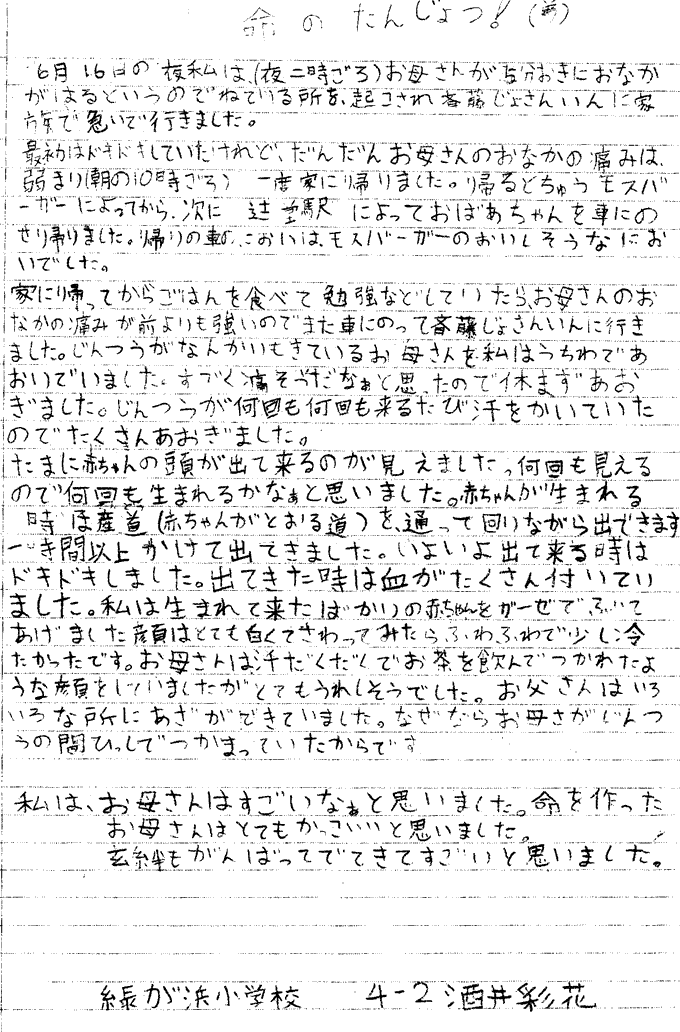 命のたんじょう!
6月16日の夜私は、(夜二時ごろ)お母さんが5分おきにおなか
がはるというのでねている所を、起こされ斉藤じょさんいんに家
族で急いで行きました。
最初はドキドキしていたけれど、だんだんお母さんのおなかの痛みは、
弱まり(朝の10時ごろ) 一度家に帰りました。帰るとちゅうモスバ
ーガーによってから、次に 辻堂駅 によっておばあちゃんを車にの
せり帰りました。帰りの車のにおいは、モスバーガーのおいしそうなにお
いでした。
家に帰ってからごはんを食べて勉強などしていたら、お母さんのお
なかの痛みが前よりも強いのでまた車にのって斉藤じょさんいんに行き
ました。じんつうがなんかいもきているお母さんを私はうちわであ
おいでいました。すごく痛そうだなぁと思ったので休まずあお
ぎました。じんつうが何回も何回も来るたび汗をかいていた
のでたくさんあおぎました。
たまに赤ちゃんの頭が出て来るのが見えました。何回も見える
ので何回も生まれるかなぁと思いました。赤ちゃんが生まれる
時は産道(赤ちゃんがとおる道)を、通って回りながら出できます
一時間以上かけて出てきました。いよいよ出て来る時は
ドキドキしました。出てきた時は血がたくさん付いてい
ました。私は生まれて来たばかりの赤ちゃんをガーゼでふいて
あげました顔はとても白くてさわってみたらふわふわで少し冷
たかったです。お母さんは汗だくだくでお茶を飲んでつかれたよ
うな顔をしていましたがとてもうれしそうでした。お父さんはいろ
いろな所にあざができていました。なぜならお母さがじんつ
うの間ひっしでつかまっていたからです
私は、お母さんはすごいなぁと思いました。命を作った
お母さんはとてもかっこいいと思いました。
玄絆もがんばってでてきてすごいと思いました。
緑が浜小学校 4-2 酒井彩花